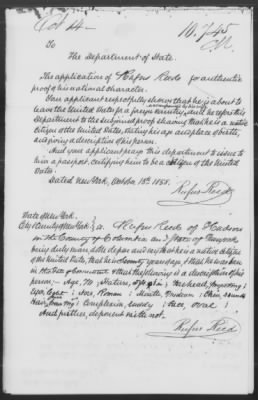 Oct 14
To
The Department of State.
The application of Rufus Reed for authentic
proof of his national character.
Your applicant respectfully shows that he is about to
leave the United States for a foreign country, and he
Department to the subjoined proof showing that he is a native
Citizen of the United States, stating his age and place of birth,
and giving a description of his person.
And your applicant prays this department to issue to
him a passport, certifying him to be a Citizen of the United
States.
Dated New York, October 13th 1858.
Rufus Reed
State of New York
City & County of New York } ss. Rufus Reed of Hudson
in the County of Columbia and State of New York
being duly sworn, doth depose and say that he is a native citizen
of the United States, that he is years of age, & that he was born
in the State of & that the following is a description of his
person:— Age, ; Stature, ; Forehead,
Eyes, ; Nose, Roman ; Mouth, Medium ; Chin, round
Hair, ; Complexion, sandy ; Face, oval ;
And further, deponent saith not.
Rufus Reed